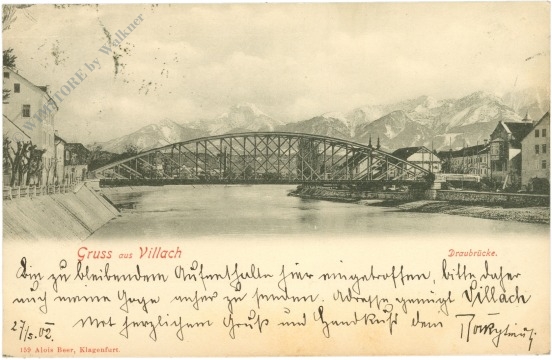 W H STORE by Walkner
Gruss aus Villach
Draubrücke.
Bin zu bleibendem Aufenthalte hier eingetroffen, bitte daher
mich meine Gage anher zu senden. Adresse genügt Villach
27/3.02. Mit herzlichem Gruß und Handkuß dem
159 Alois Beer, Klagenfurt.